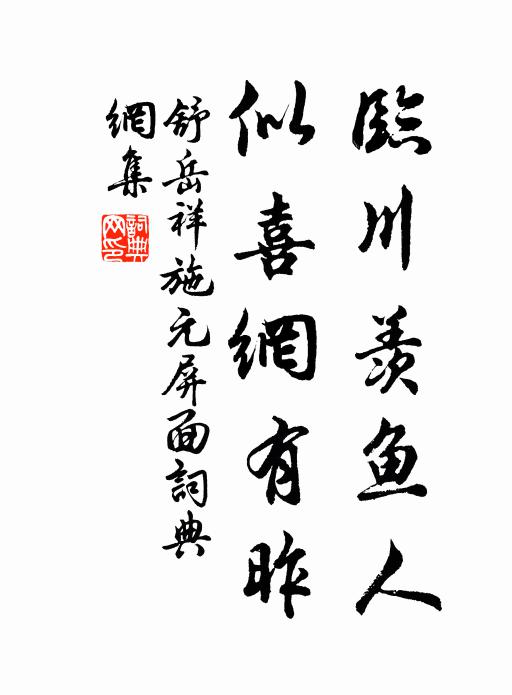 臨川羨鱼人
似喜網有昨
舒岳祥施元屏面詞典
網集
詞典
网印